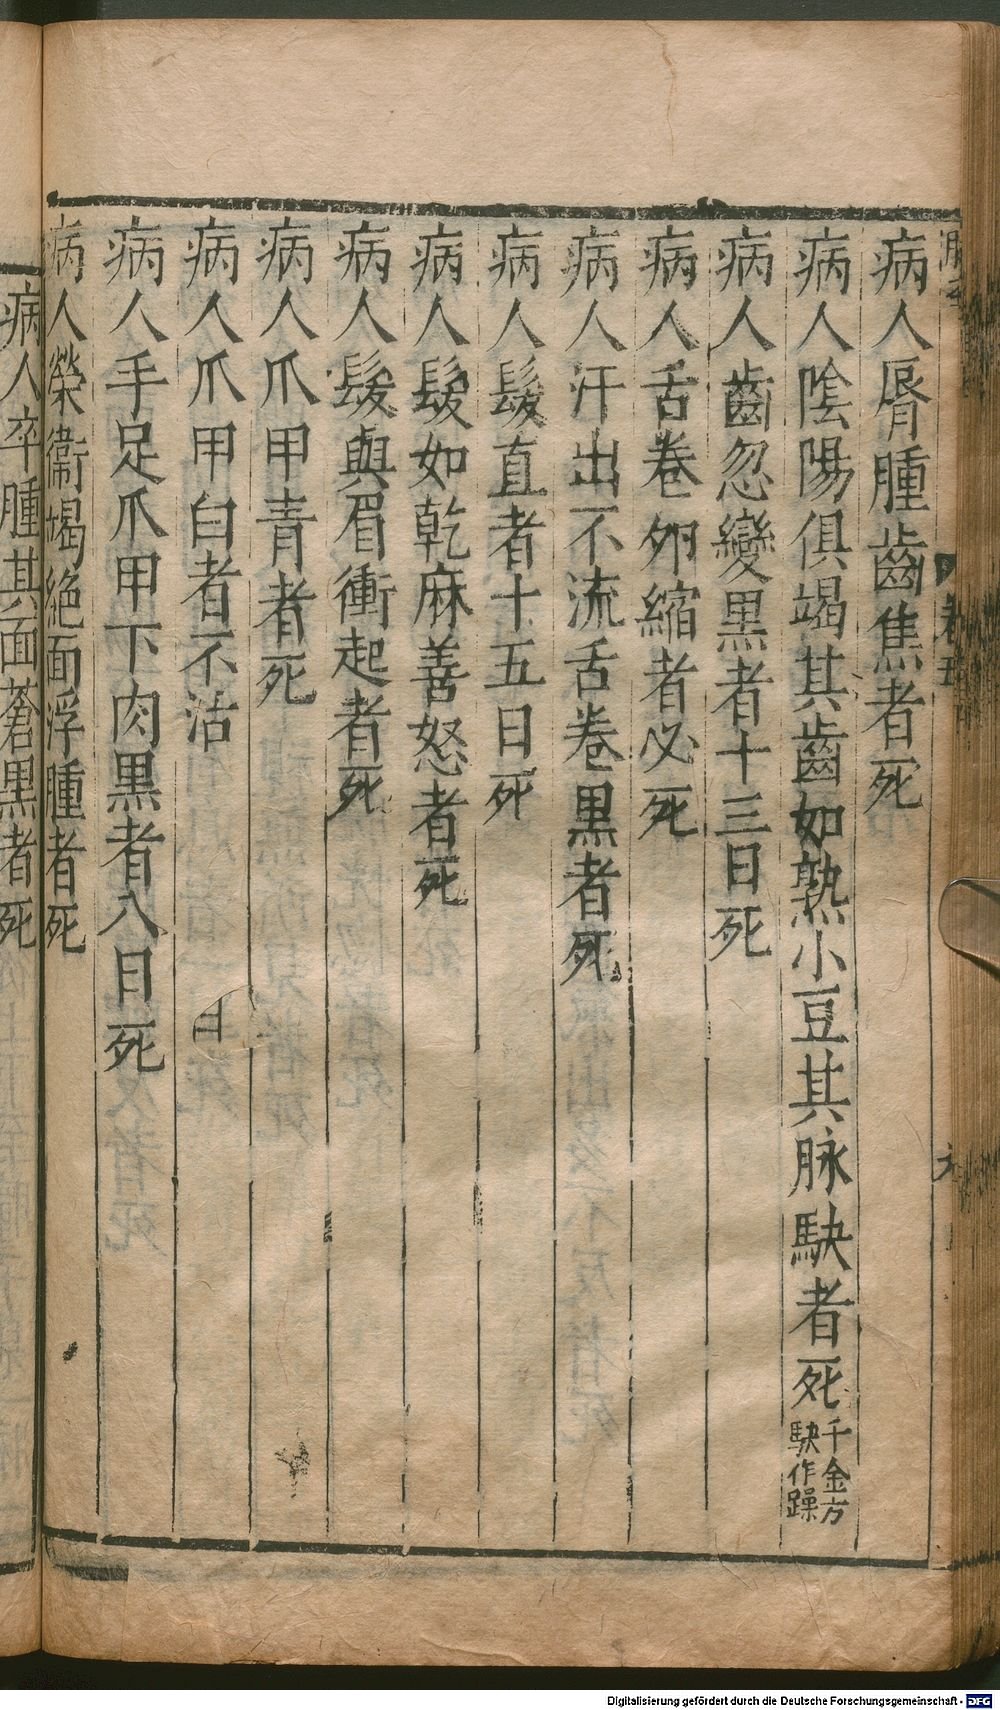 病人脣腫齒焦者死
病人陰陽俱竭其齒如熟小豆其脉駃者死千金方駃作躁
病人齒忽變黑者十三日死
病人舌卷卵縮者必死
病人汗出不流舌卷黑者死
病人髮直者十五日死
病人髮如乾麻善怒者死
病人髮與眉衝起者死
病人爪甲青者死
病人爪甲白者不治
病人手足爪甲下肉黑者八日死
病人榮衞竭絶面浮腫者死
病人卒腫其面蒼黑者死
Digitalisierung gefördert durch die Deutsche Forschungsgemeinschaft - DFG